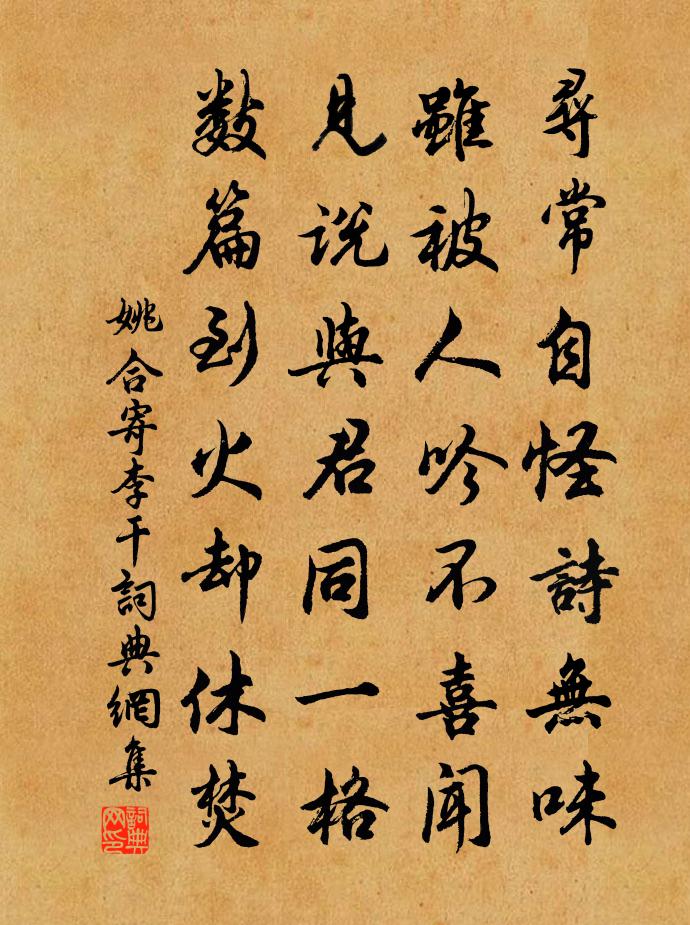 尋常自怪詩無味
雖被人吟不喜聞
見説與君同一格
數篇到火却休焚
姚合寄李干詞典網集
詞典网印